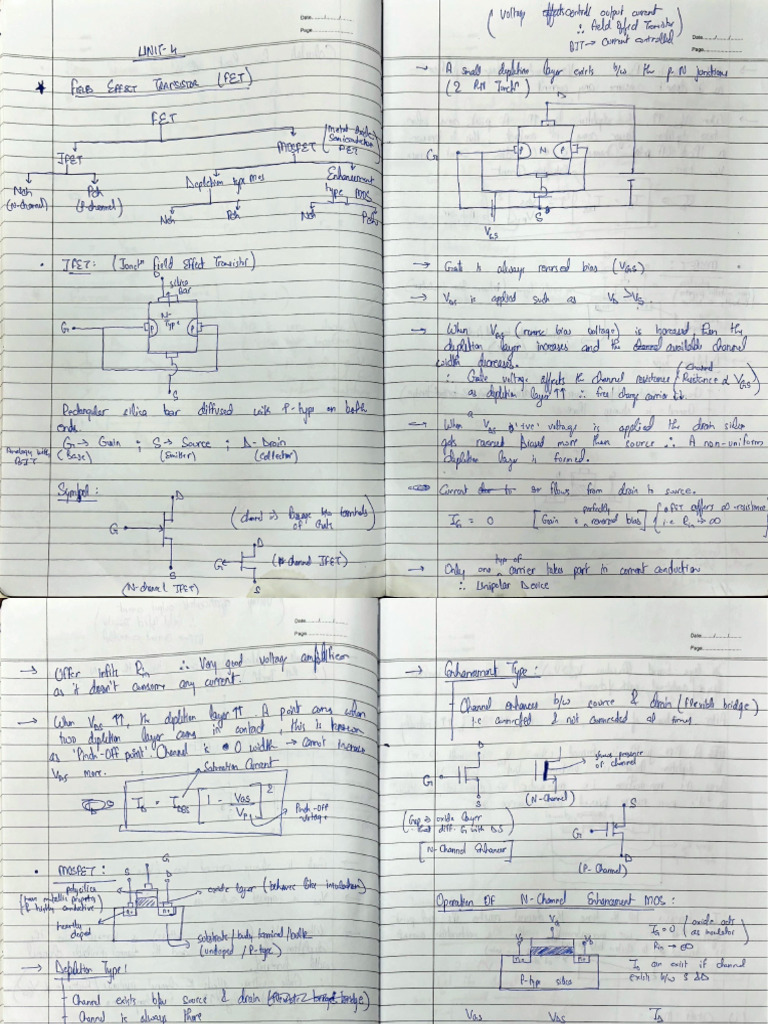 Date...../...../.....
Page..................
UNIT-4
* FIELD EFFECT TRANSISTOR (FET)
FET
JFET
MOSFET (Metal Oxide Semiconductor FET)
Nch (N-channel)
Pch (P-channel)
Depletion type MOS
Enhancement type MOS
Nch
Pch
Nch
Pch
• JFET: (Junctn Field Effect Transistor)
D
silica
bar
G
P
N-
Type
P
S
Rectangular silica bar diffused with P-type on both
ends.
G → Gain ; S → Source ; D - Drain
Analogy with BJT (Base) (Emitter) (Collector)
Symbol:
D
G
S
(N-channel JFET)
(channel => Passage b/w terminals
of Gate)
D
G
S
(P-channel JFET)
(Voltage effects controls output current
∴ Field Effect Transistor
BJT → Current controlled
Date...../...../.....
Page..................
→ A small depletion layer exists b/w the P-N junctions
(2 P-N Junctn)
D
G
P
N-
P
S
VGS
→ Gate is always reversed bias (VGS)
→ VDS is applied such as VD > VS.
→ When VGS (reverse bias voltage) is increased, then the
depletion layer increases and the available channel
width decreases.
∴ Gate voltage effects the channel resistance (Channel Resistance α VGS)
as depletion layer ↑↑ ∴ free charge carrier
→ When VDS a '+ve' voltage is applied the drain silica
gets reversed biased more than source ∴ A non-uniform
depletion layer is formed.
Current flows from drain to source.
IG = 0 [Gain is perfectly reversed bias] {offers ∞ resistance i.e. Rin → ∞
→ Only one type of carrier takes part in current conduction
∴ Unipolar Device
Date...../...../.....
Page..................
→ Offer infite Rin ∴ Very good voltage amplifier
as it doesn't consume any current.
→ When VGS ↑↑, the depletion layer ↑↑ A point comes when
two depletion layer comes in contact, this is known
as 'Pinch-Off point'. Channel is 0 width → cannot increase
VGS more.
Saturation Current
ID = IDSS [1 - VGS/VP]²
Pinch-Off
voltage
• MOSFET:
G
S
D
polysilica
(have metallic property
& highly conductive)
oxide layer (behaves like insulation)
n+
n+
heavily
doped
substrate / body terminal / bulk
(undoped / P-type)
→ Depletion Type:
- Channel exists b/w source & drain
- Channel is always there
Date...../...../.....
Page..................
→ Enhancement Type:
- Channel enhances b/w source & drain (flexible bridge)
i.e connected & not connected at times
D
G
S
shows presence
of channel
(N-Channel)
(Gap => oxide layer
that diff. G with DS)
[N-Channel Enhancer]
S
G
D
(P-Channel)
Operation OF N-Channel Enhancement MOS:
VG
VS
VD
n+
n+
P-type silica
IG = 0 (oxide acts as insulator)
Rin → ∞
ID can exist if channel
exist b/w S & D
VGS VDS ID